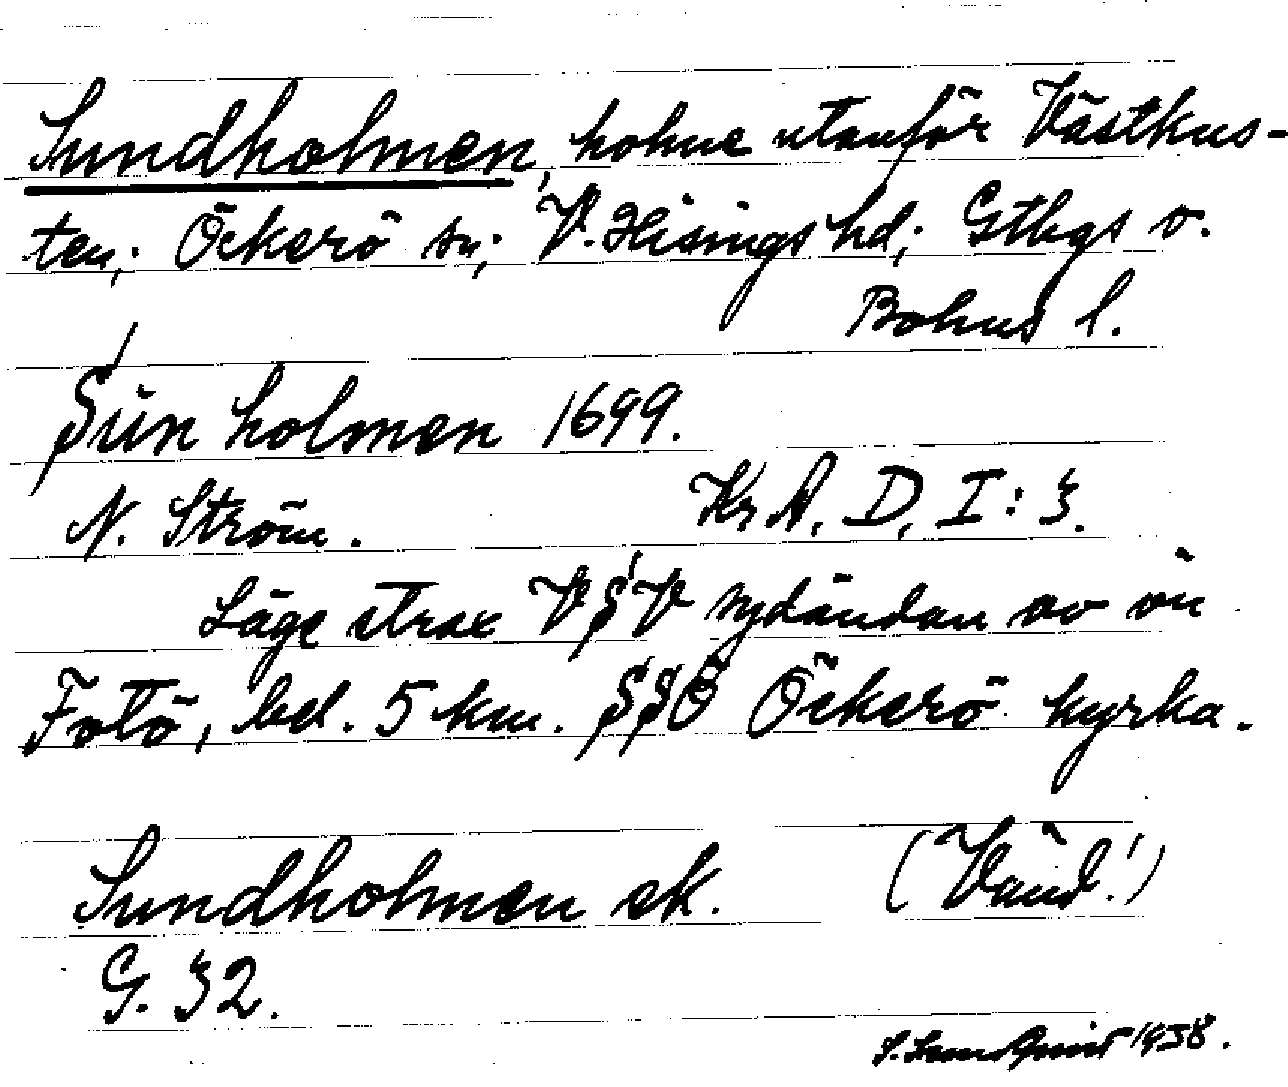 Sundholmen, holme utanför Västkus-
ten; Öckerö sn; V. Hisings hd; Gtbgs o.
Bohus l.
Sun holmen 1699.
N. Ström. Kr A. D. I: 3.
Läge strax VSV sydändan av ön
Fotö, bel. 5 km. SSÖ Öckerö kyrka.
Sundholmen ek. (Vänd!)
G. 32.
1938.